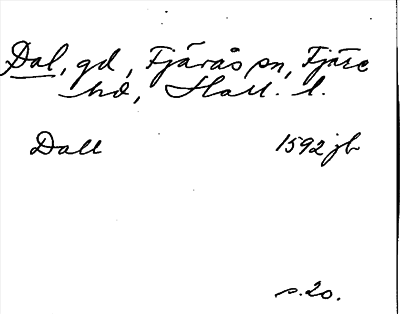 Dal, gd, Fjärås sn, Fjäre
hd, Hall. l.
Dall 1592 jb
s. 20.